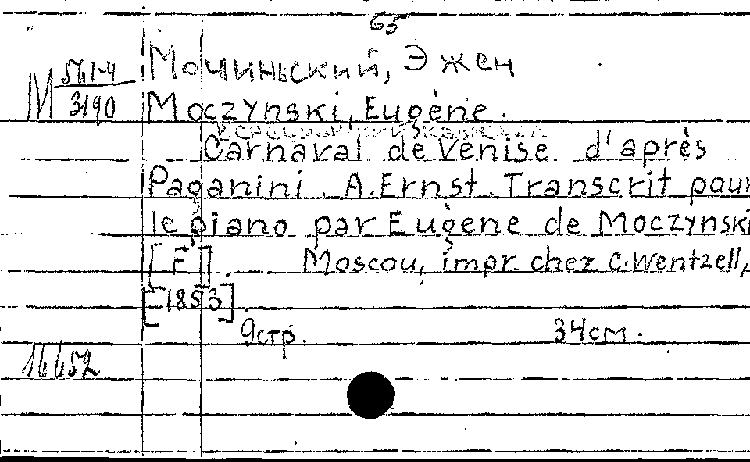 65
М 561-4/3190
Мочиньский, Эжен
Moczynski, Eugène.
Carnaval de Venise d'après
Paganini. A. Ernst. Transcrit pour
le piano par Eugène de Moczynski
[F]. Moscou, impr. chez C. Wentzell,
[1853]
9стр. 34см.
16652